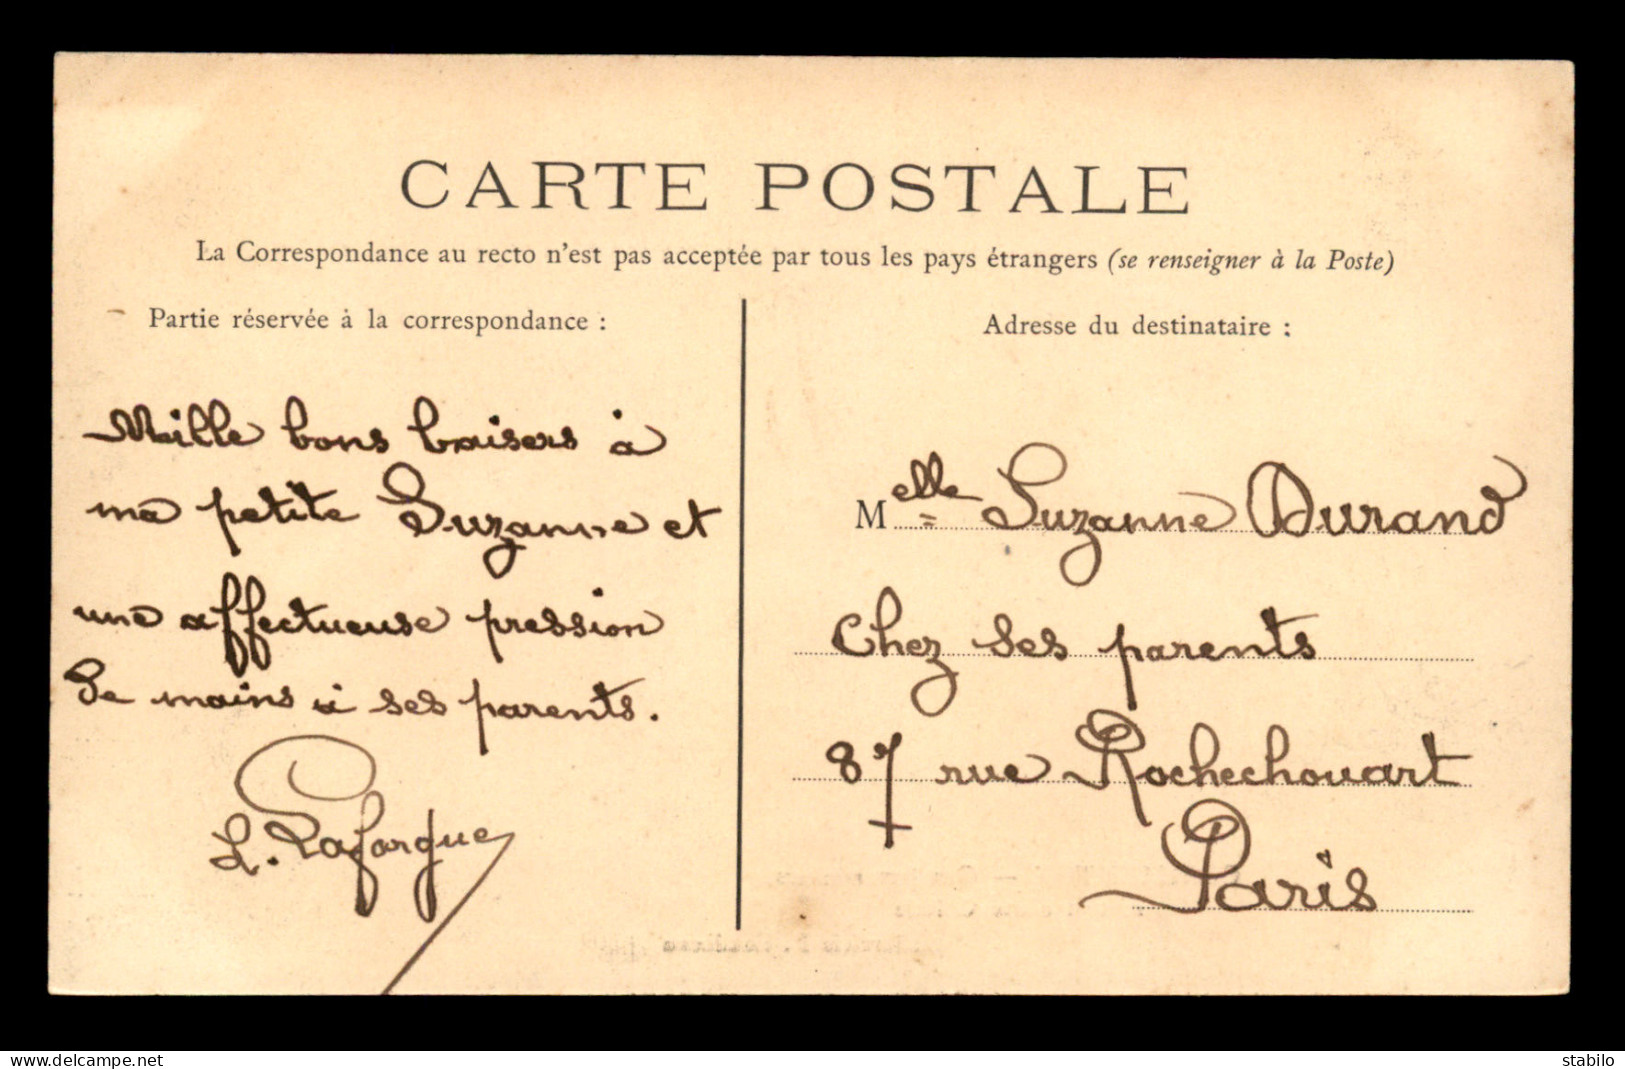 CARTE POSTALE
La Correspondance au recto n'est pas acceptée par tous les pays étrangers (se renseigner à la Poste)
Partie réservée à la correspondance :
Mille bons baisers à
ma petite Suzanne et
une affectueuse pression
de mains à ses parents.
L. Lafargue
Adresse du destinataire :
Melle Suzanne Durand
Chez ses parents
87 rue Rochechouart
Paris
www.delcampe.net
stabilo